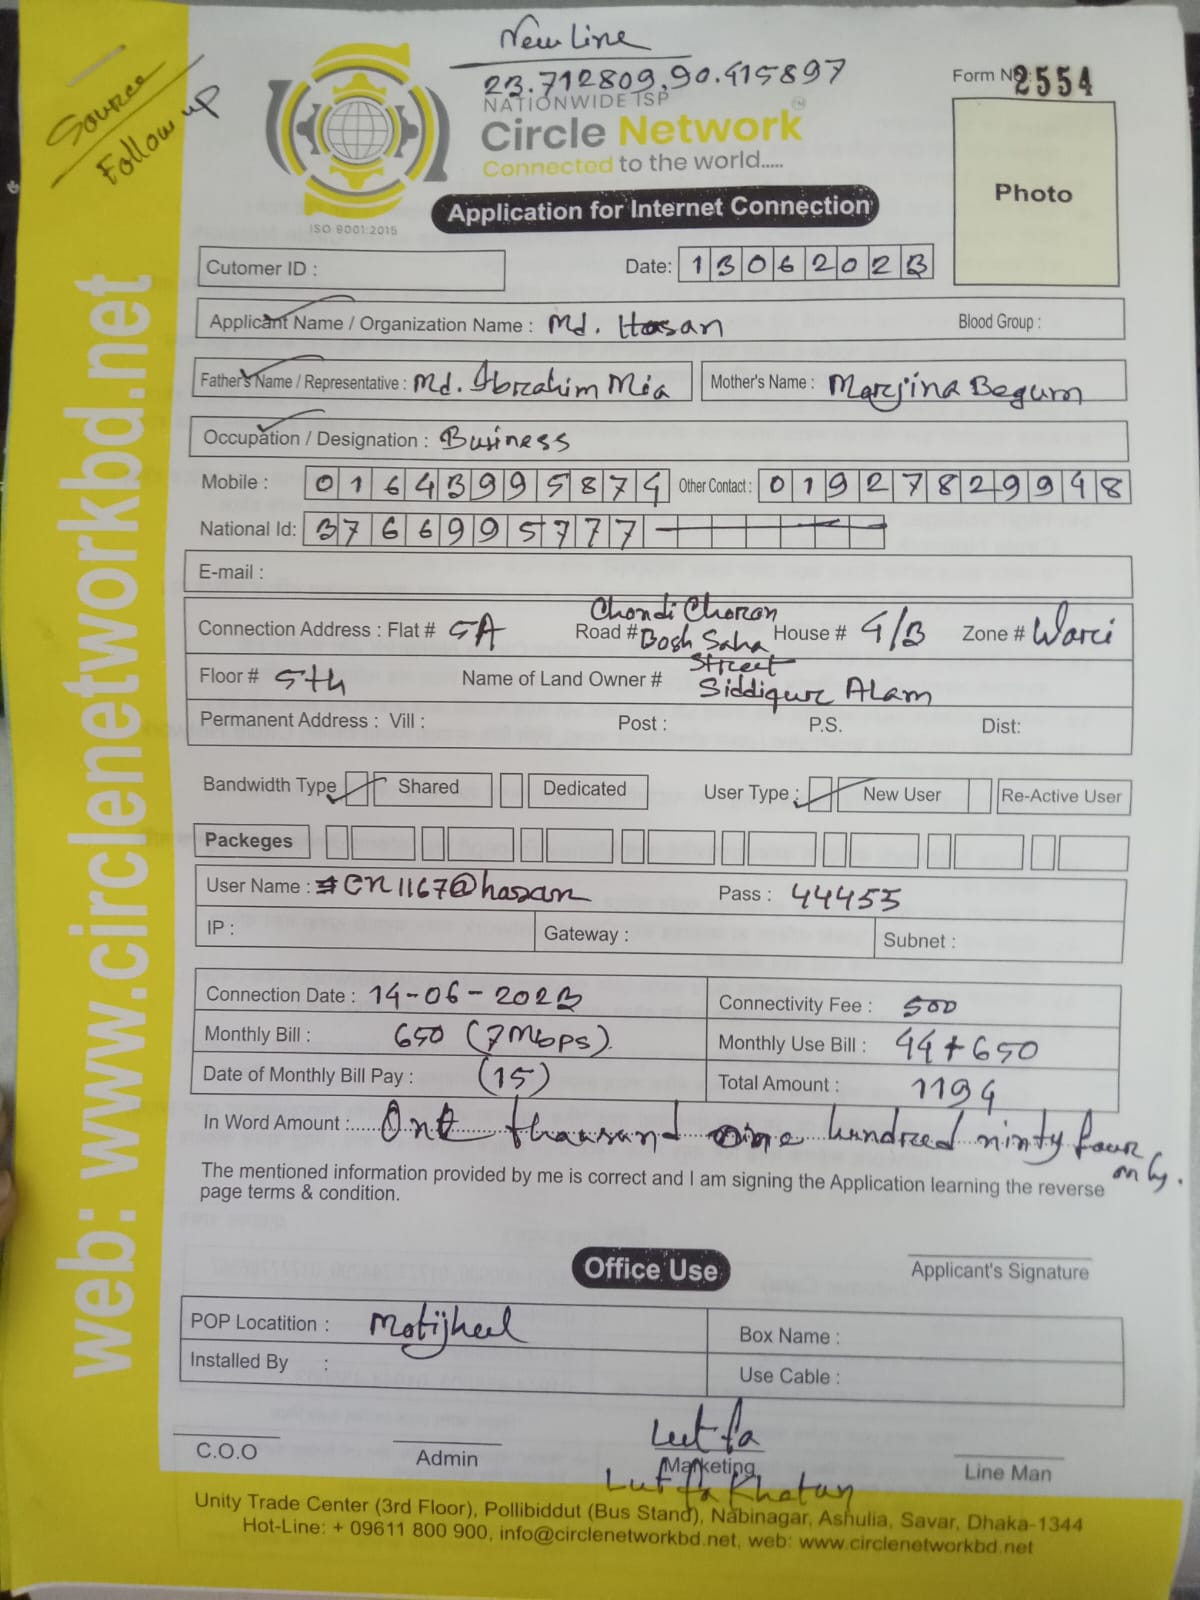 New Line
23.712809,90.415897
Source
Follow up
NATIONWIDE ISP
Circle Network
Connected to the world.....
ISO 9001:2015
Form No: 2554
Photo
Application for Internet Connection
Cutomer ID :
Date: 13062023
Applicant Name / Organization Name : Md. Hasan Blood Group :
Father's Name / Representative : Md. Ibrahim Mia Mother's Name : Marjina Begum
Occupation / Designation : Business
Mobile : 01643995874 Other Contact : 01927829948
National Id: 3766995777
E-mail :
Connection Address : Flat # 5A Road # Chondi Choron Bosh Saha Street House # 4/B Zone # Wari
Floor # 5th Name of Land Owner # Siddiqur Alam
Permanent Address : Vill : Post : P.S. Dist:
Bandwidth Type Shared Dedicated User Type : New User Re-Active User
Packeges
User Name : #CN1167@hasan Pass : 44455
IP : Gateway : Subnet :
Connection Date : 14-06-2023 Connectivity Fee : 500
Monthly Bill : 650 (7Mbps). Monthly Use Bill : 44+650
Date of Monthly Bill Pay : (15) Total Amount : 1194
In Word Amount :..... One thousand one hundred ninty four only.
The mentioned information provided by me is correct and I am signing the Application learning the reverse
page terms & condition.
Office Use
Applicant's Signature
POP Locatition : Motijheel Box Name :
Installed By : Use Cable :
Lutfa
C.O.O Admin Marketing Line Man
Lutfa Khatun
Unity Trade Center (3rd Floor), Pollibiddut (Bus Stand), Nabinagar, Ashulia, Savar, Dhaka-1344
Hot-Line: + 09611 800 900, info@circlenetworkbd.net, web: www.circlenetworkbd.net
web: www.circlenetworkbd.net